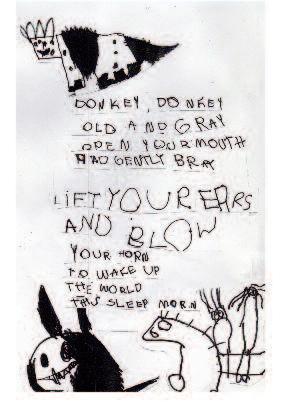 DONKEY, DONKEY
OLD AND GRAY
OPEN YOUR MOUTH
AND GENTLY BRAY
LIFT YOUR EARS
AND BLOW
YOUR HORN
TO WAKE UP
THE WORLD
THIS SLEEP MORN